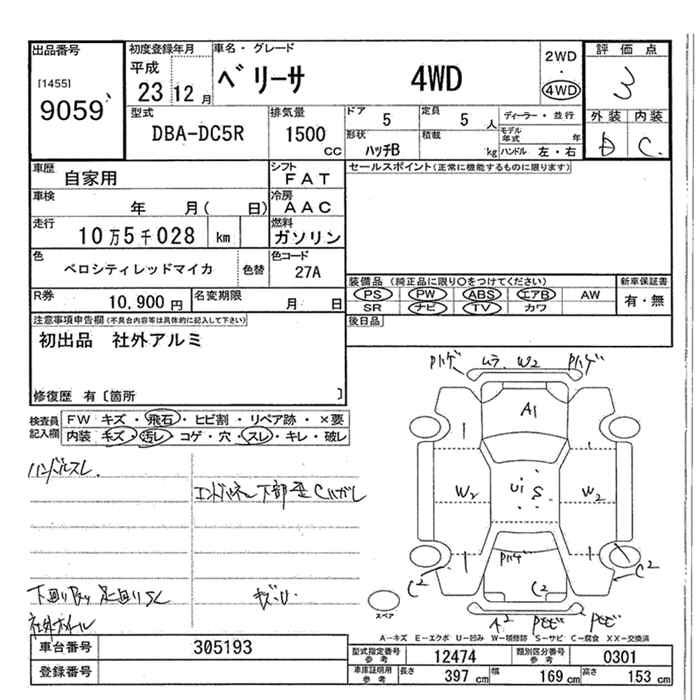 出品番号
[1455]
9059
初度登録年月
平成
23 12 月
車名・グレード
ベリーサ 4WD
2WD
・
4WD
評価点
3
外装 内装
D C
型式
DBA-DC5R
排気量
1500
CC
ドア
5
定員
5 人
ディーラー・並行
形状
ハッチB
積載
kg
モデル年式 年
ハンドル 左・右
車歴
自家用
シフト
FAT
車検
年 月( 日)
冷房
AAC
走行
10万5千028 km
燃料
ガソリン
色
ベロシティレッドマイカ
色替
色コード
27A
R券
10,900 円
名変期限
月 日
セールスポイント(正常に機能するものに限ります)
装備品(純正品に限り○をつけてください)
新車保証書
PS PW ABS エアB AW
SR ナビ TV カワ
有・無
後日品
注意事項申告欄(不具合内容等は具体的に記入して下さい)
初出品 社外アルミ
修復歴 有〔箇所 〕
検査員記入欄
FW キズ・飛石・ヒビ割・リペア跡・×要
内装 キズ・汚レ・コゲ・穴・スレ・キレ・破レ
ハンドルスレ
エンドパネル下部歪Cハガレ
下回りS 足回りS
キズ・U
社外ホイール
Pハゲ ムラ W2 Pハゲ
A1
W2 Ui S W2
Pハゲ
C2
C2 C2
A2 Pモビ Pモビ
スペア
A-キズ E-エクボ U-凹み W-補修跡 S-サビ C-腐食 XX-交換済
車台番号
305193
登録番号
型式指定番号 参考
12474
類別区分番号 参考
0301
車庫証明用 参考
長さ 397 cm
幅 169 cm
高さ 153 cm